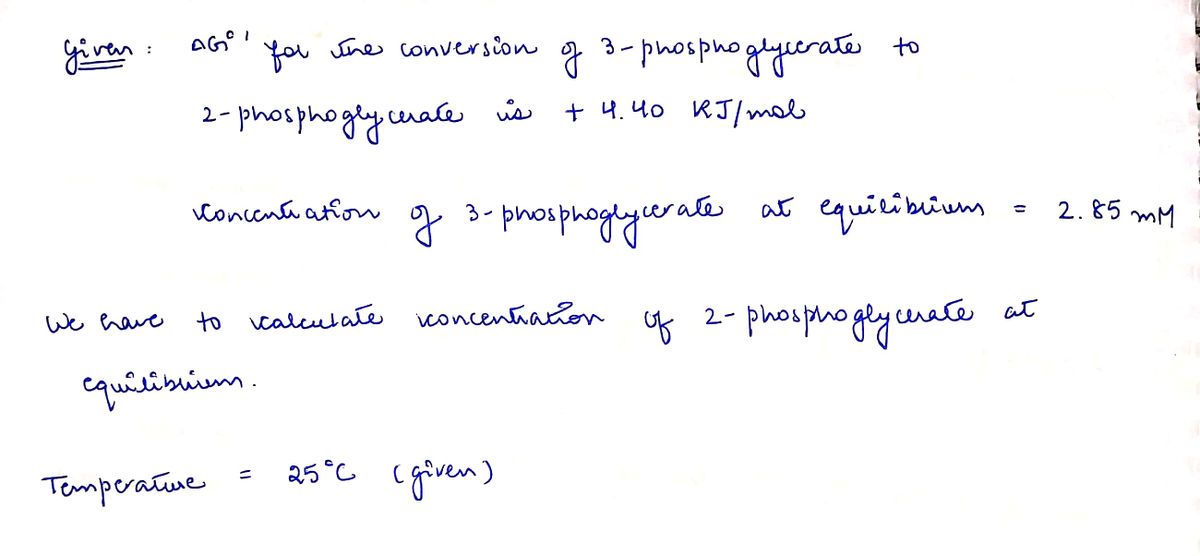 Given : ΔG°' for the conversion of 3-phosphoglycerate to
2-phosphoglycerate is + 4.40 KJ/mol
Concentration of 3-phosphoglycerate at equilibrium = 2.85 mM
We have to calculate concentration of 2-phosphoglycerate at
equilibrium.
Temperature = 25°C (given)